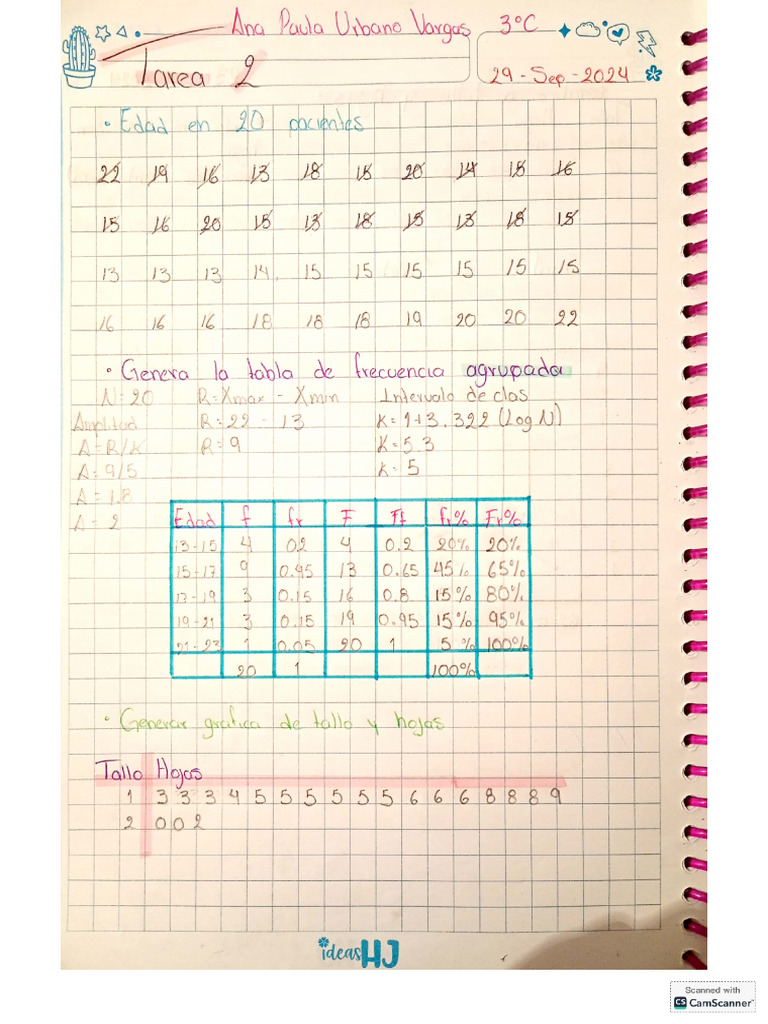 Ana Paula Urbano Vargas 3°C
Tarea 2
29-Sep-2024
• Edad en 20 pacientes
22 19 16 13 18 15 20 14 18 16
15 16 20 15 13 18 15 13 18 15
13 13 13 14 15 15 15 15 15 15
16 16 16 18 18 18 19 20 20 22
• Genera la tabla de frecuencia agrupada
N=20 R=Xmax - Xmin Intervalo de clas
Amplitud R=22 - 13 K=1+3.322 (Log N)
A=R/K R=9 K=5.3
A=9/5 K=5
A=1.8
A=2
Edad f fr F Ff fr% Fr%
13-15 4 0.2 4 0.2 20% 20%
15-17 9 0.45 13 0.65 45% 65%
17-19 3 0.15 16 0.8 15% 80%
19-21 3 0.15 19 0.95 15% 95%
21-23 1 0.05 20 1 5% 100%
20 1 100%
• Generar grafica de tallo y hojas
Tallo Hojas
1 3 3 3 4 5 5 5 5 5 5 6 6 6 8 8 8 9
2 0 0 2
ideas HJ
Scanned with
CS CamScanner